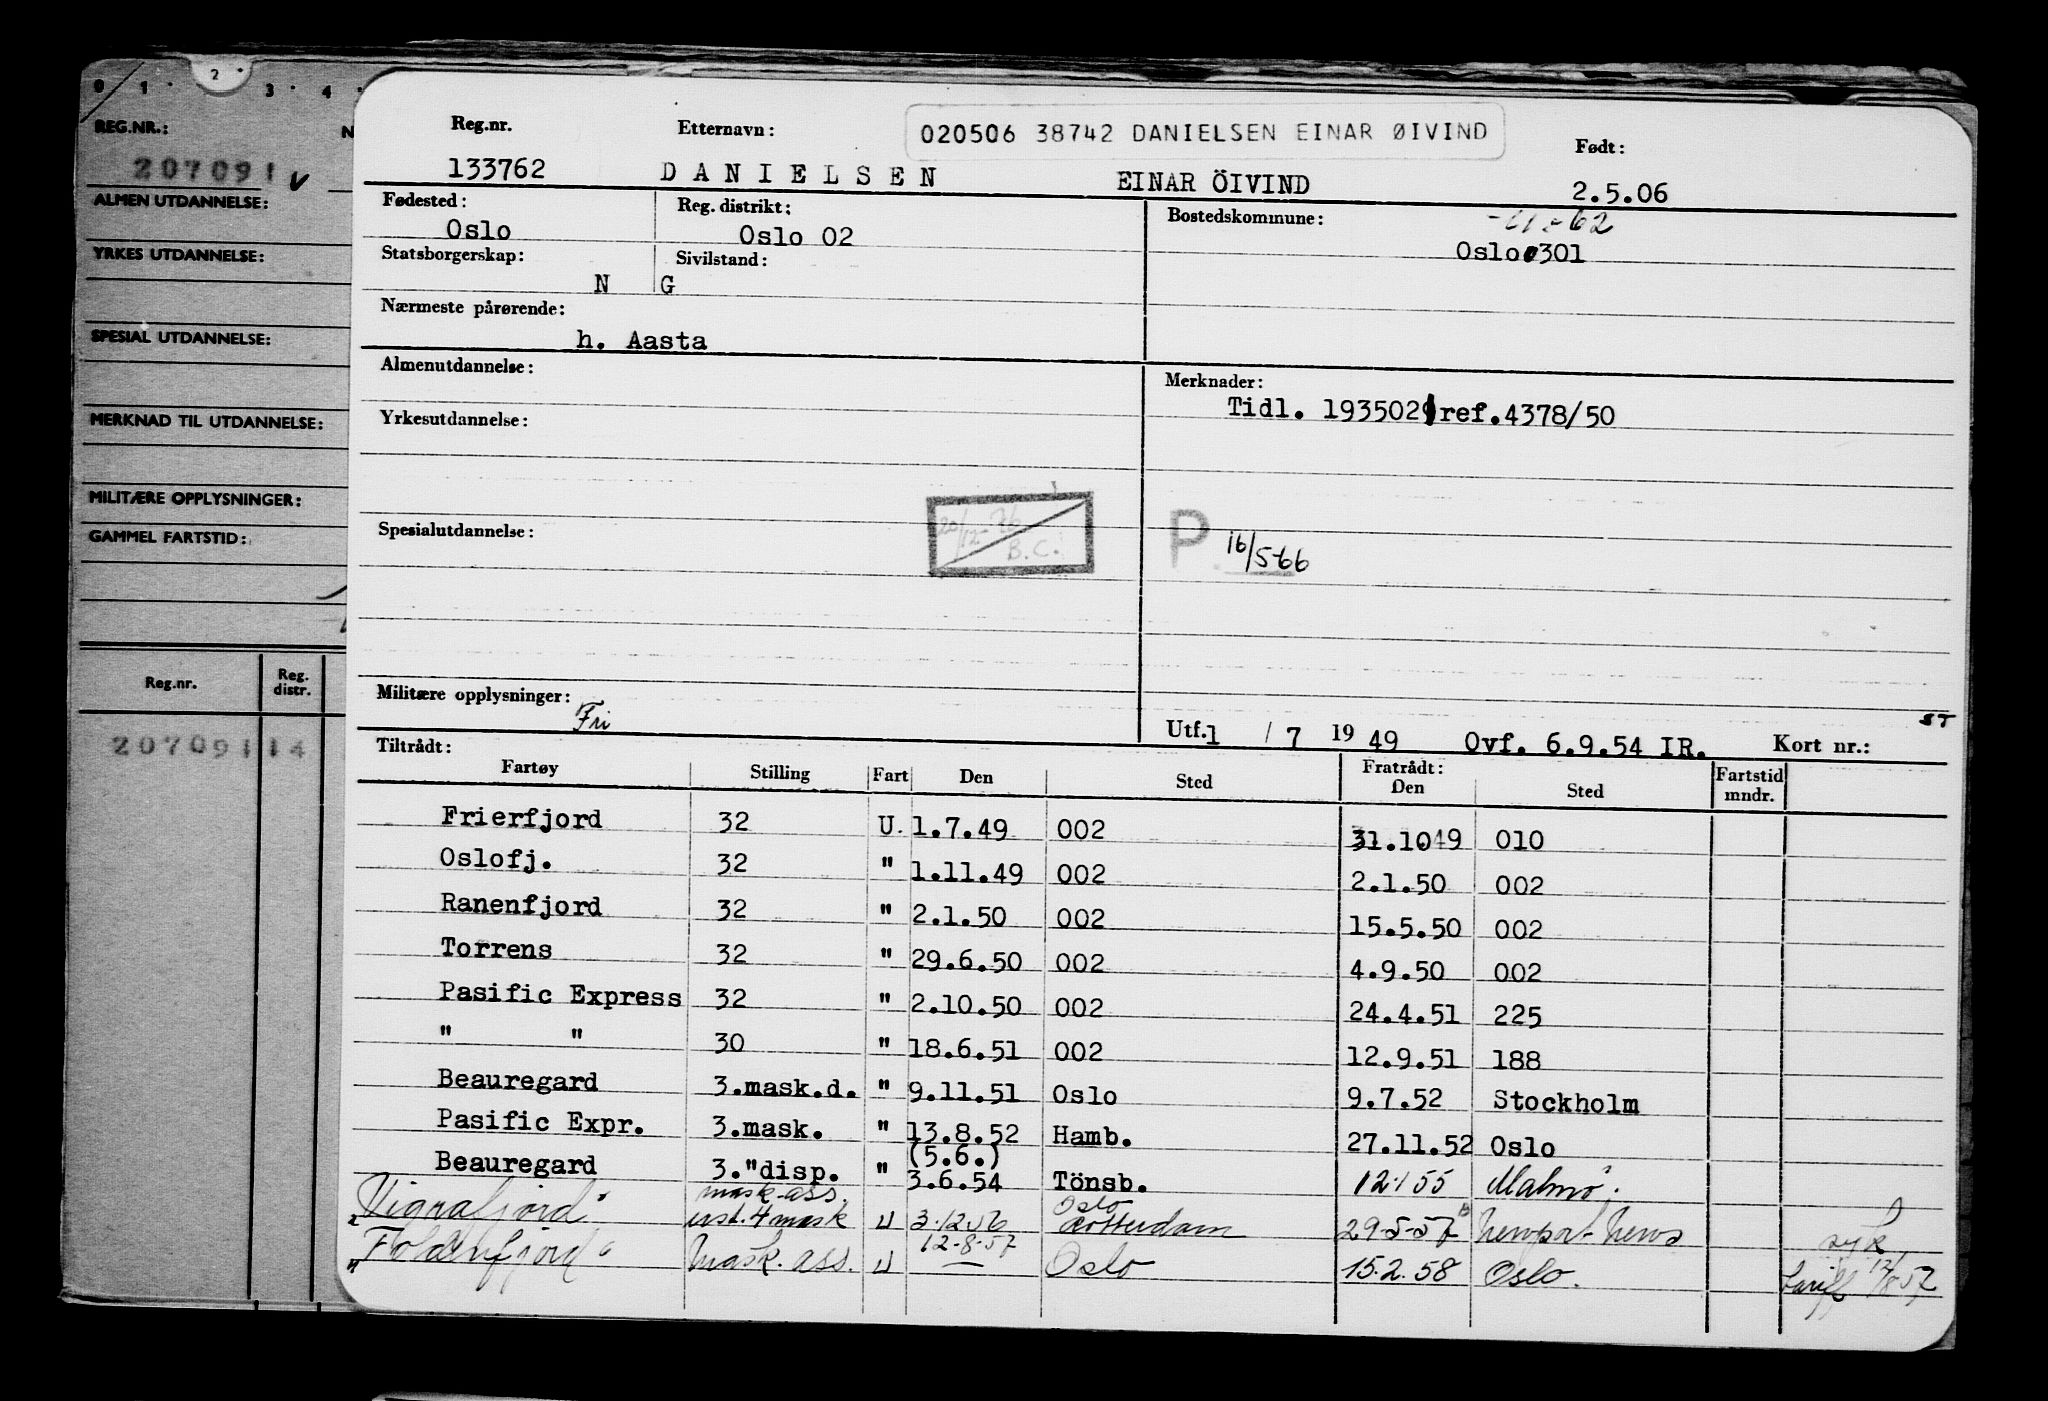 0 1 · 2 · 3 · 4 ·
REG.NR.:
207091 v
ALMEN UTDANNELSE:
YRKES UTDANNELSE:
SPESIAL UTDANNELSE:
MERKNAD TIL UTDANNELSE:
MILITÆRE OPPLYSNINGER:
GAMMEL FARTSTID:
Reg.nr. Reg. distr.
207091 14
Reg.nr. Etternavn: 020506 38742 DANIELSEN EINAR ØIVIND Født:
133762 DANIELSEN EINAR ÖIVIND 2.5.06
Fødested: Reg. distrikt: Bostedskommune: -11-62
Oslo Oslo 02 Oslo 301
Statsborgerskap: Sivilstand:
N G
Nærmeste pårørende:
h. Aasta
Almenutdannelse: Merknader:
Tidl. 193502 ref.4378/50
Yrkesutdannelse:
20/12-76 B.C.
Spesialutdannelse: P 16/5-66
Militære opplysninger: Fri
ST
Utf. 1 / 7 19 49 Ovf. 6.9.54 IR. Kort nr.:
Tiltrådt: Fratrådt:
Fartøy Stilling Fart Den Sted Den Sted Fartstid mndr.
Frierfjord 32 U. 1.7.49 002 31.10 49 010
Oslofj. 32 " 1.11.49 002 2.1.50 002
Ranenfjord 32 " 2.1.50 002 15.5.50 002
Torrens 32 " 29.6.50 002 4.9.50 002
Pasific Express 32 " 2.10.50 002 24.4.51 225
" " 30 " 18.6.51 002 12.9.51 188
Beauregard 3.mask.d. " 9.11.51 Oslo 9.7.52 Stockholm
Pasific Expr. 3.mask. " 13.8.52 Hamb. 27.11.52 Oslo
(5.6.)
Beauregard 3."disp. " 3.6.54 Tönsb. 12.1 55 Malmö.
mask-ass. Oslo
Vignafjord 4 mask u 3.12.56 Rotterdam 29-5-57 Newport News syk
12-8-57
Foldenfjord Mask. ass. u — Oslo 15.2.58 Oslo. tariff 12/8 57